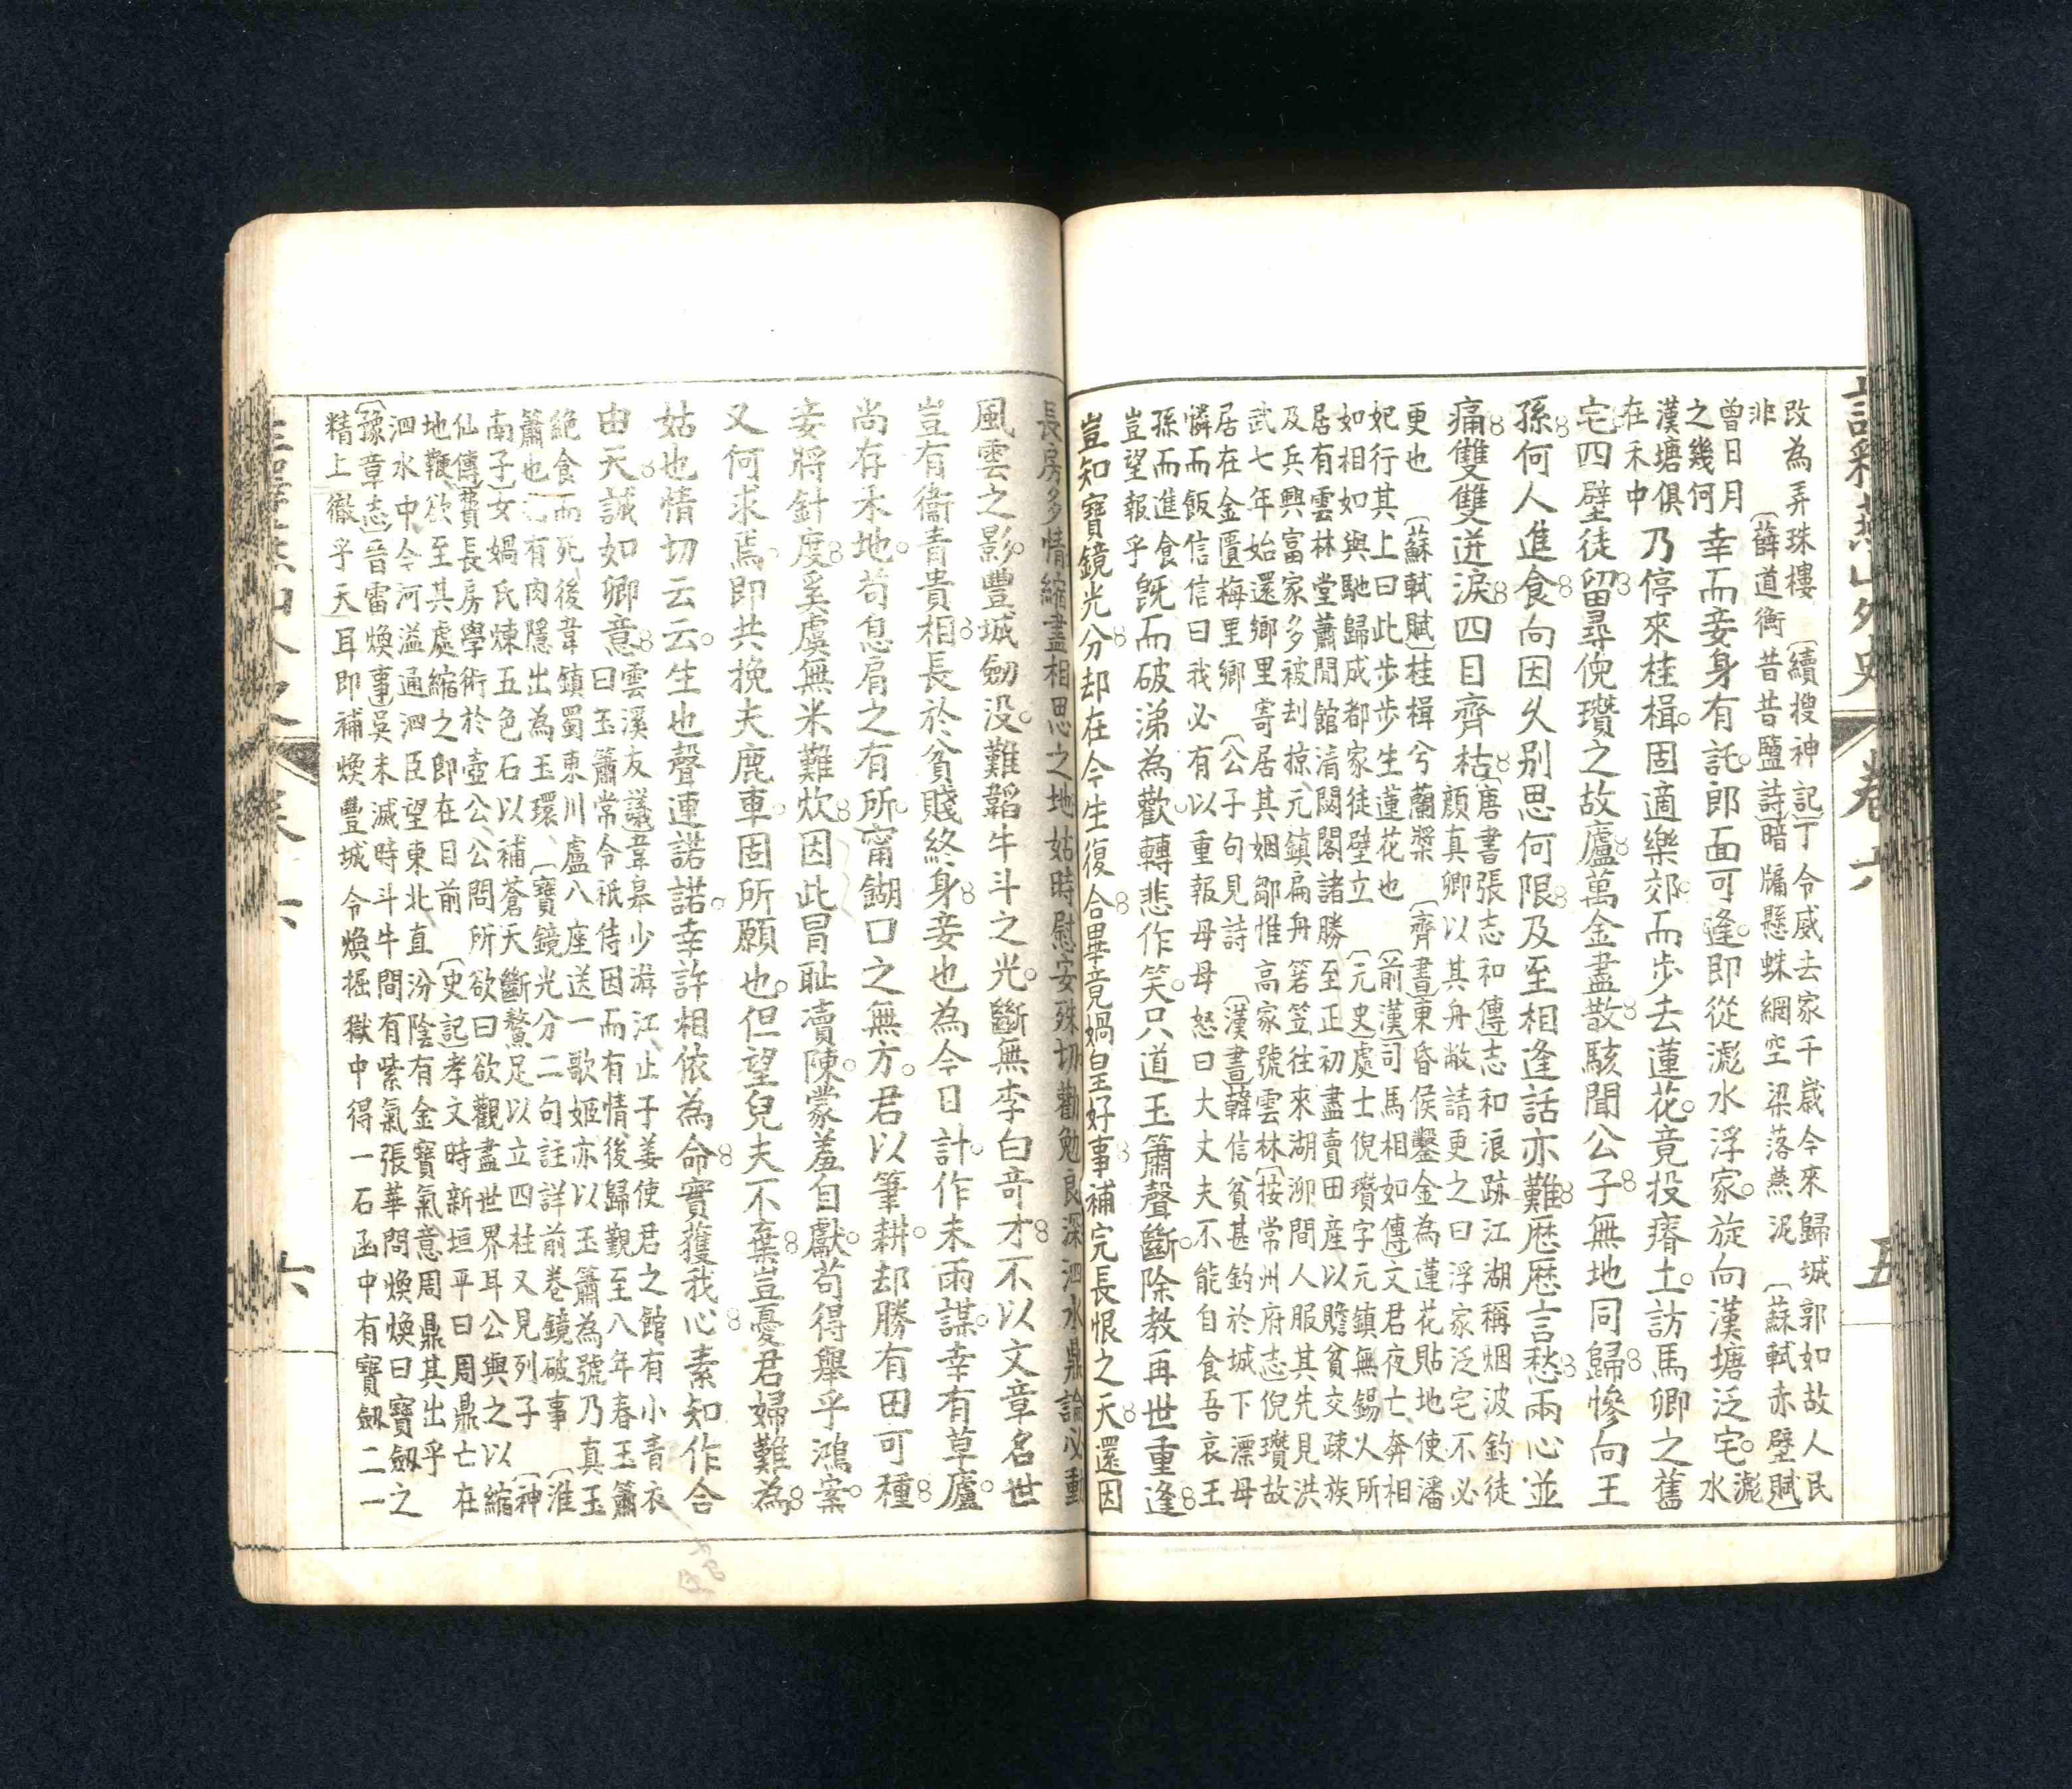 註釋燕山外史 卷六 五
改為弄珠樓 〔續搜神記〕丁令威去家千歲今來歸城郭如故人民
非 〔薛道衡昔昔鹽詩〕暗牖懸蛛網空梁落燕泥 〔蘇軾赤壁賦〕
曾日月
之幾何
幸而妾身有託。郎面可逢。即從滮水浮家。旋向漢塘泛宅。
滮
水
漢塘俱
在禾中
乃停來桂楫。固適樂郊。而步去蓮花。竟投瘠土。訪馬卿之舊
宅。四壁徒留。尋倪瓚之故廬。萬金盡散。駭聞公子。無地同歸。慘向王
孫。何人進食。向因久别思何限。及至相逢話亦難。歷歷言愁。兩心並
痛。雙雙迸淚。四目齊枯。
〔唐書張志和傳〕志和浪跡江湖稱烟波釣徒
顏真卿以其舟敝請更之曰浮家泛宅不必
更也 〔蘇軾賦〕桂楫兮蘭槳 〔齊書〕東昏侯鑿金為蓮花貼地使潘
妃行其上曰此步步生蓮花也 〔前漢〕司馬相如傳文君夜亡奔相
如相如與馳歸成都家徒壁立 〔元史〕處士倪瓚字元鎮無錫人所
居有雲林堂蕭閒館清閟閣諸勝至正初盡賣田産以贍貧交疎族
及兵興富家多被刦掠元鎮扁舟箬笠往來湖泖間人服其先見洪
武七年始還鄉里寄居其姻鄒惟高家號雲林〔按常州府志倪瓚故
居在金匱梅里鄉 〔公子句見詩 〔漢書〕韓信貧甚釣於城下漂母
憐而飯信信曰我必有以重報母母怒曰大丈夫不能自食吾哀王
孫而進食
豈望報乎
旣而破涕為歡。轉悲作笑。只道玉簫聲斷。除教再世重逢。
豈知寶鏡光分。却在今生復合。畢竟媧皇好事。補完長恨之天。還因
長房多情縮盡相思之地姑時慰安殊切勸勉良深泗水鼎淪必動
風雲之影。豐城劒没。難韜牛斗之光。斷無李白奇才。不以文章名世
豈有衞青貴相。長於貧賤終身。妾也為今日計。作未雨謀。幸有草廬。
尚存禾地。苟息肩之有所。甯餬口之無方。君以筆耕。却勝有田可種。
妾將針度。奚虞無米難炊。因此冒耻瀆陳。蒙羞自獻。苟得舉乎鴻案。
又何求焉。即共挽夫鹿車。固所願也。但望兒夫不棄。豈憂君婦難為。
姑也情切云云。生也聲連諾諾。幸許相依為命。實獲我心。素知作合
由天。誠如卿意。
〔雲溪友議〕韋皋少游江止于姜使君之館有小青衣
曰玉簫常令祇侍因而有情後歸覲至八年春玉簫
絶食而死後韋鎮蜀東川盧八座送一歌姬亦以玉簫為號乃真玉
簫也 有肉隱出為玉環、〔寶鏡光分二句註詳前卷鏡破事 〔淮
南子〕女媧氏煉五色石以補蒼天斷鰲足以立四柱又見列子 〔神
仙傳〕費長房學術於壺公、公問所欲曰欲觀盡世界耳公與之以縮
地鞭欲至其處縮之即在目前 〔史記〕孝文時新垣平曰周鼎亡在
泗水中今河溢通泗臣望東北直汾陰有金寶氣意周鼎其出乎
〔豫章志〕晉雷煥事〕吳未滅時斗牛間有紫氣張華問煥煥曰寶劒之
精上徹乎天耳即補煥豐城令煥掘獄中得一石函中有寶劒二一
六